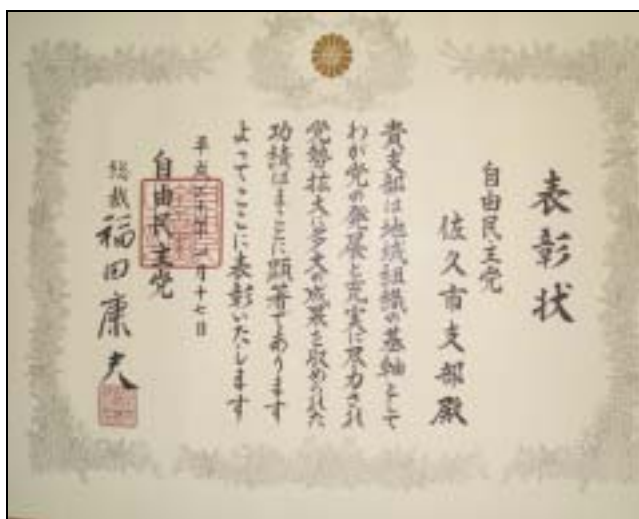 表彰状
自由民主党
佐久市支部殿
貴支部は地域組織の基軸として
わが党の発展と充実に尽力され
党勢拡大に多大の成果を収められた
功績はまことに顕著であります
よってここに表彰いたします
平成二十年一月十七日
自由民主党
総裁 福田康夫